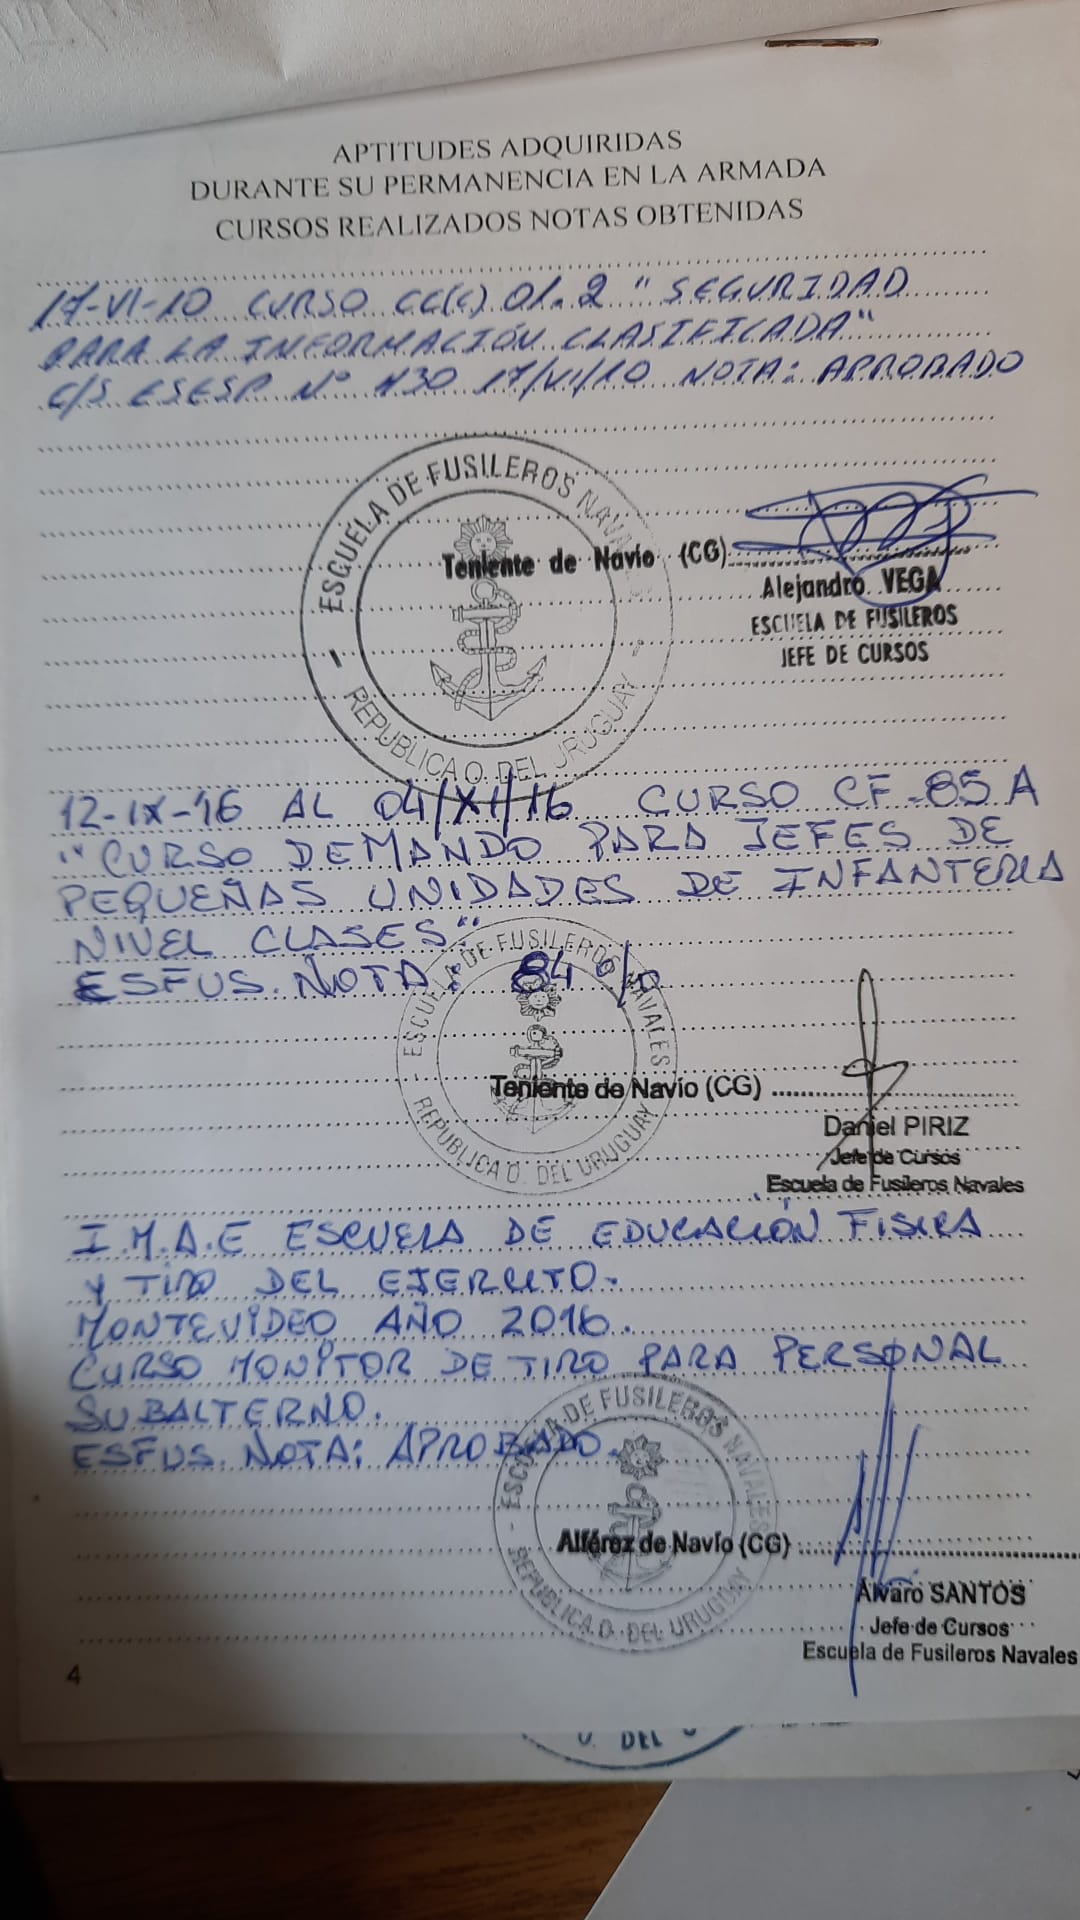 APTITUDES ADQUIRIDAS
DURANTE SU PERMANENCIA EN LA ARMADA
CURSOS REALIZADOS NOTAS OBTENIDAS
17-VI-10 CURSO CC(C) 01.2 "SEGURIDAD
PARA LA INFORMACIÓN CLASIFICADA"
C/S ESESP Nº 430 17/VI/10 NOTA: APROBADO
ESCUELA DE FUSILEROS NAVALES
REPUBLICA O. DEL URUGUAY
Teniente de Navío (CG)
Alejandro VEGA
ESCUELA DE FUSILEROS
JEFE DE CURSOS
12-IX-16 AL 04/XI/16 CURSO CF-85 A
"CURSO DEMANDO PARA JEFES DE
PEQUEÑAS UNIDADES DE INFANTERIA
NIVEL CLASES"
ESFUS. NOTA: 84 %
ESCUELA DE FUSILEROS NAVALES
REPUBLICA O. DEL URUGUAY
Teniente de Navío (CG)
Daniel PIRIZ
Jefe de Cursos
Escuela de Fusileros Navales
I.M.A.E ESCUELA DE EDUCACIÓN FISICA
Y TIRO DEL EJERCITO.
MONTEVIDEO AÑO 2016.
CURSO MONITOR DE TIRO PARA PERSONAL
SUBALTERNO.
ESFUS. NOTA: APROBADO.
ESCUELA DE FUSILEROS NAVALES
REPUBLICA O. DEL URUGUAY
Alférez de Navío (CG)
Alvaro SANTOS
Jefe de Cursos
Escuela de Fusileros Navales
4
O. DEL U